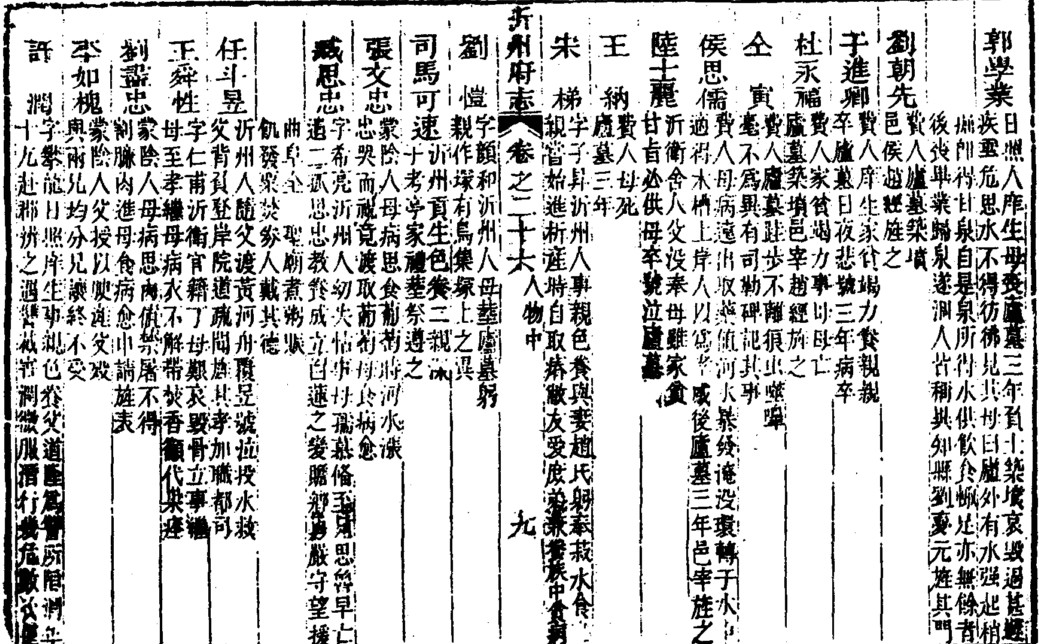 郭學業
日照人庠生母喪廬墓三年負土築墳哀毀過甚遘
疾甚危思水不得彷彿見其母曰廬外有水强起稍
掘卽得甘泉自是泉所得水供飲食輒足亦無餘者
後喪畢業歸泉遂涸人皆稱異知縣劉元旌其門
劉朝先
費人廬墓築墳
邑侯趙經旌之
于進卿
費人庠生家貧竭力養親親
卒廬墓日夜悲號三年病卒
杜永福
費人家貧竭力事母母亡
廬墓築墳邑宰趙經旌之
仝寅
費人廬墓跬步不離狼虫
毫不爲異有司勒碑記其事
侯思儒
費人母病遠出取藥値河水暴發淹没環轉于水中
適得木槽上岸人以爲孝感後廬墓三年邑宰旌之
陸士麗
沂衛舍人父没奉母雖家貧
甘旨必供母卒號泣廬墓
王納
費人母死
廬墓三年
宋梯
字子昇沂州人事親色養與妻趙氏躬奉菽水食
親嘗始進析産時自取
沂州府志
卷之二十六
人物中
九
劉愷
字顏和沂州人母塟廬墓躬
親作塚有烏集塚上之異
司馬可速
沂州貢生色養二親
于考亭家禮塟祭遵之
張文忠
蒙陰人母病思食葡萄時河水漲
忠哭而視竟渡取葡萄母食病愈
臧思忠
字希亮沂州人幼失怙事母孺慕備至兄思曾早亡
遺二孤思忠敎養成立白蓮之變贍鄉勇嚴守望援
曲阜全聖廟煮粥賑
飢發粟焚券人戴其德
任斗昱
沂州人隨父渡黃河舟覆昱號泣投水救
父背負登岸院道疏聞旌其孝加職都司
王舜性
字仁甫沂衛官籍丁母艱哀毀骨立事繼
母至孝繼母病衣不解帶焚香籲代果痊
劉盡忠
蒙陰人母病思肉值禁屠不得
割臁肉進母食病愈申請旌表
李如槐
蒙陰人父授以腴産父歿
與兩兄均分兄讓終不受
許潤
字攀龍日照庠生事親色養父道隆爲讐所陷潤年
十九赴